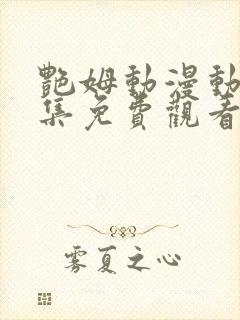 艷姆動漫動
集免費觀看
雾夏之心